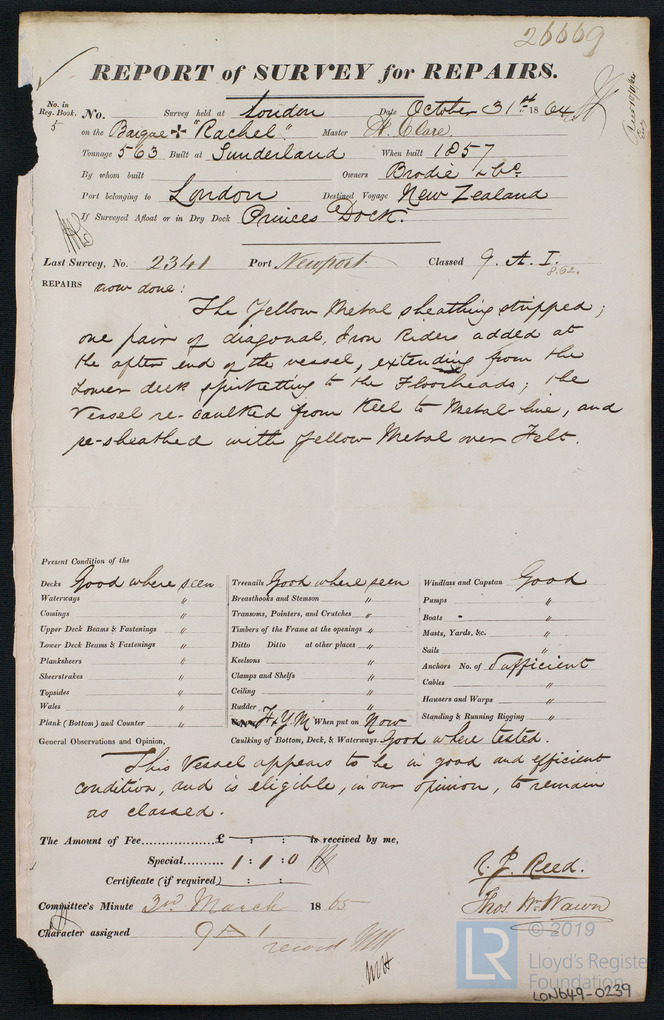 26669
REPORT of SURVEY for REPAIRS.
No. in Reg. Book. No. Survey held at London Date October 31st 1864
5 on the Barque "Rachel" Master H. Clare
Tonnage 563 Built at Sunderland When built 1857
By whom built Owners Brodie & Co.
Port belonging to London Destined Voyage New Zealand
If Surveyed Afloat or in Dry Dock Princes Dock.
Last Survey, No. 2341 Port Newport Classed 9. A. I.
8.62.
REPAIRS now done:
The Yellow Metal sheathing stripped;
one pair of diagonal Iron Riders added at
the after end of the vessel, extending from the
Lower deck spirketting to the Floorheads; the
Vessel re-caulked from Keel to Metal-line, and
re-sheathed with Yellow Metal over Felt.
Present Condition of the
Decks Good where seen
Waterways "
Comings "
Upper Deck Beams & Fastenings "
Lower Deck Beams & Fastenings "
Planksheers "
Sheerstrakes "
Topsides "
Wales "
Plank (Bottom) and Counter "
Treenails Good where seen
Breasthooks and Stemson "
Transoms, Pointers, and Crutches "
Timbers of the Frame at the openings "
Ditto Ditto at other places "
Keelsons "
Clamps and Shelfs "
Ceiling "
Rudder "
F & Y.M When put on Now
Caulking of Bottom, Deck, & Waterways. Good where tested.
Windlass and Capstan Good
Pumps "
Boats "
Masts, Yards, &c. "
Sails "
Anchors No. of Sufficient
Cables "
Hausers and Warps "
Standing & Running Rigging "
General Observations and Opinion,
This Vessel appears to be in good and efficient
condition, and is eligible, in our opinion, to remain
as classed.
The Amount of Fee £ : : is received by me,
Special 1 : 1 : 0
Certificate (if required) : :
R. J. Reed.
Thos. Wm Wawn
Committee's Minute 3rd March 1865
Character assigned 9 A 1
record
© 2019
LR
Lloyd's Registe
Foundation
LON649-0239